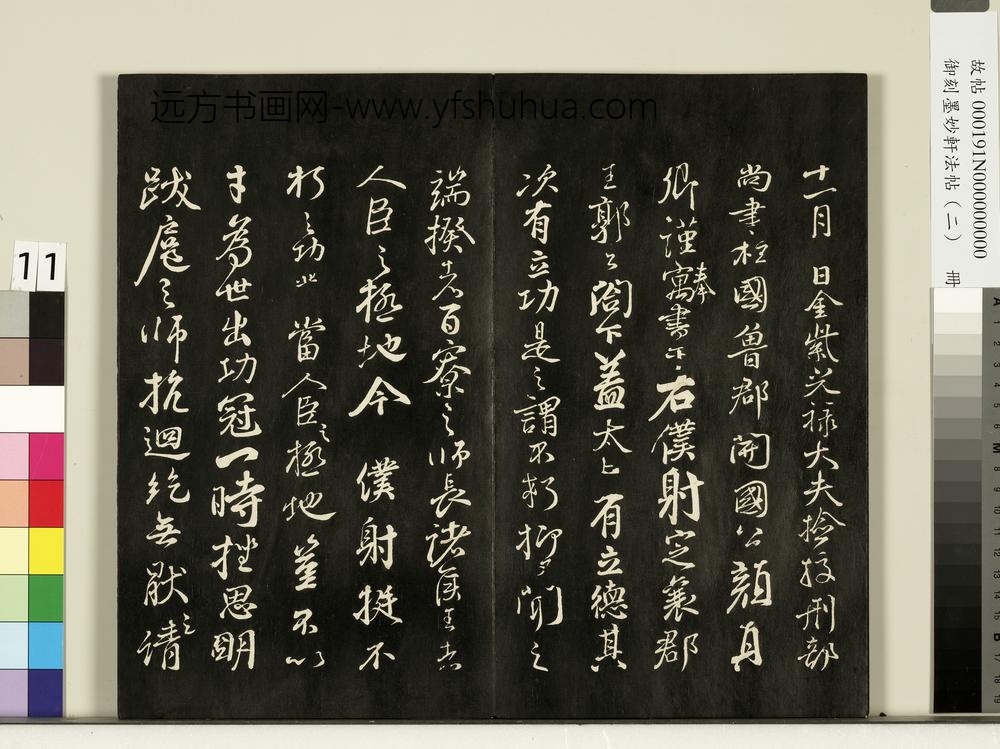 远方书画网-www.yfshuhua.com
故帖 000191N000000000
御刻墨妙軒法帖（二） 冊
十一月 日金紫光祿大夫檢校刑部
尚書上柱國魯郡開國公顏真
卿謹奉寓書于右僕射定襄郡
王郭公閤下蓋太上有立德其
次有立功是之謂不朽抑又聞之
端揆者百寮之師長諸侯王者
人臣之極地今 僕射挺不
朽之功業 當人臣之極地豈不以
才為世出功冠一時挫思明
跋扈之師抗迴紇無厭之請
11